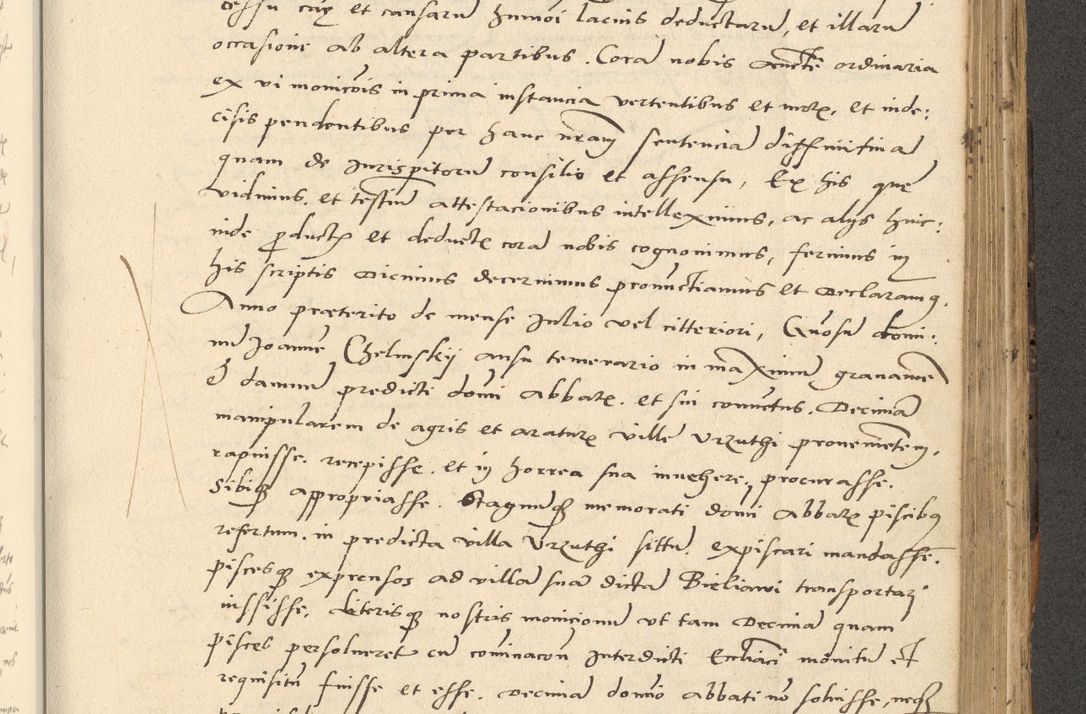 cessu cae et causaru humoi lacius deductaru, et illaru
occasione ab altera partibus. Cora nobis aucte ordinaria
ex vi monicois in prima instancia vertentibus et motx, et inde:
cisis pendentibus per hanc nram sentencia diffinitiua
quam de Jurisperitoru consilio et assensu, Ex his que
vidimus. et testiu attestacionibus intelleximus, ac alijs huic:
inde productx et deductx cora nobis cognouimus, ferimus in
his scriptis Dicimus decernimus pronuctiamus et Declaramq.
Anno præterito de mense Julio vel citteriori, Gnosu domi:
nu Joanne Chelmskij ausu temerario in maximum grauamē
& damnu predicti domi Abbatx. et sui conuctus. Decima
manipularem de agris et araturx ville Vrzuthi prouenietem,
rapuisse. recepisse. et in horrea sua inuehere, procurasse.
Sibiqz appropriasse. Stagnuqz memorati domi Abbatx piscibq
refertum. in predicta villa Vrzuthi sittu. expiscari mandasse.
piscesqz exprensos ad villa sua dicta Bieliawi transportarj
iussisse. Literisqz nostris monicionu vt tam Decima quam
pisces persolueret cu cominacon Interdicti Eccliaci monitu et
requisitu fuisse et esse. Decima domo Abbati no soluisse, neqz